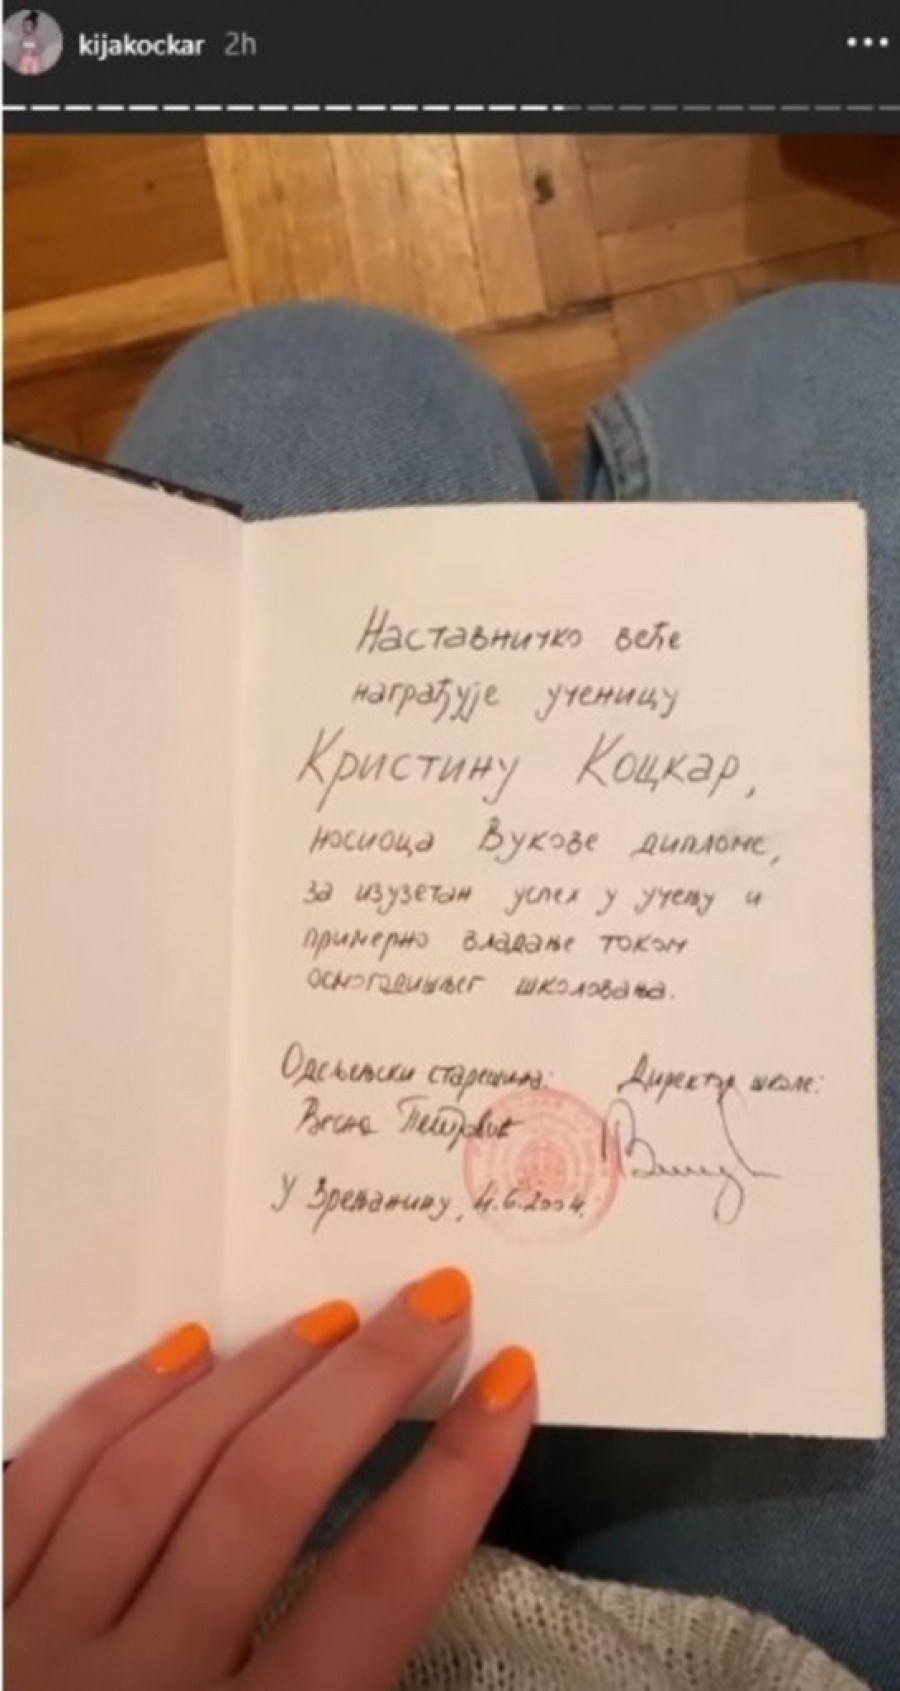 kijakockar 2h
Наставничко веће
награђује ученицу
Кристину Коцкар,
носиоца Вукове дипломе,
за изузетан успех у учењу и
примерно владање током
осмогодишњег школовања.
Одељенски старешина: Директор школе:
Весна Петровић
У Зрењанину, 4.6.2004.